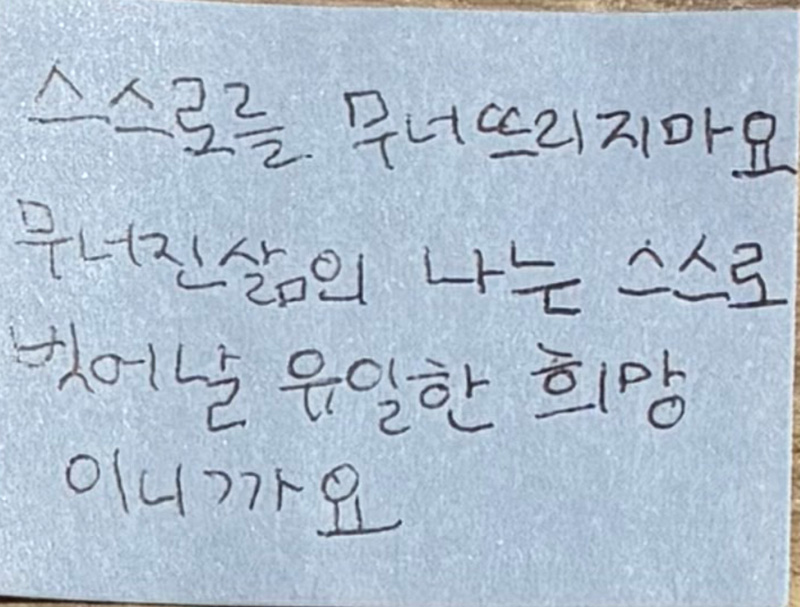 스스로를 무너뜨리지마요
무너진삶의 나는 스스로
벗어날 유일한 희망
이니까요